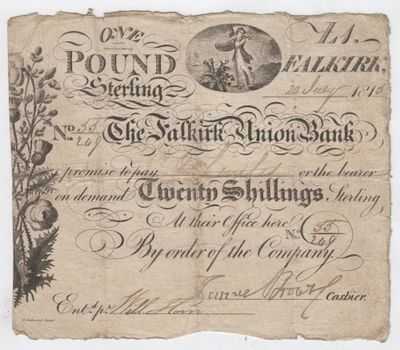 ONE
POUND
Sterling
£1.
FALKIRK,
20 July 1816
No. 55/249 The Falkirk Union Bank
promise to pay or the bearer
on demand Twenty Shillings Sterling
At their Office here
No. 55/249
By order of the Company.
Entd. pr. Will Cashier.